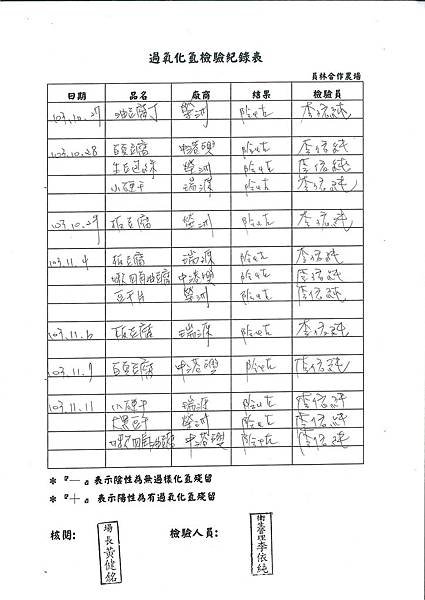 過氧化氫檢驗紀錄表
員林合作農場
日期 品名 廠商 結果 檢驗員
103.10.27 油豆腐丁 榮洲 陰性 李依純
103.10.28 百頁豆腐 中港興 陰性 李依純
生豆包絲 榮洲 陰性 李依純
小豆干 瑞源 陰性 李依純
103.10.29 板豆腐 榮洲 陰性 李依純
103.11.4 板豆腐 瑞源 陰性 李依純
四角油豆腐 中港興 陰性 李依純
豆干片 榮洲 陰性 李依純
103.11.6 板豆腐 瑞源 陰性 李依純
103.11.7 百頁豆腐 中港興 陰性 李依純
103.11.11 小豆干 瑞源 陰性 李依純
大黑豆干 榮洲 陰性 李依純
四角油豆腐 中港興 陰性 李依純
※『—』表示陰性為無過樣化氫殘留
※『＋』表示陽性為有過氧化氫殘留
核閱： 場長黃健銘 檢驗人員： 衛生管理李依純